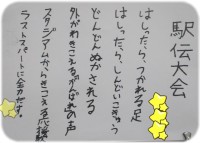 駅伝大会
はしったら、つかれる足
はしったら、しんどいこきゅう
どんどんぬかされる
外がわきこえるがんばれの声
スタジアムからきこえる応援
ラストスパートに全力だす。